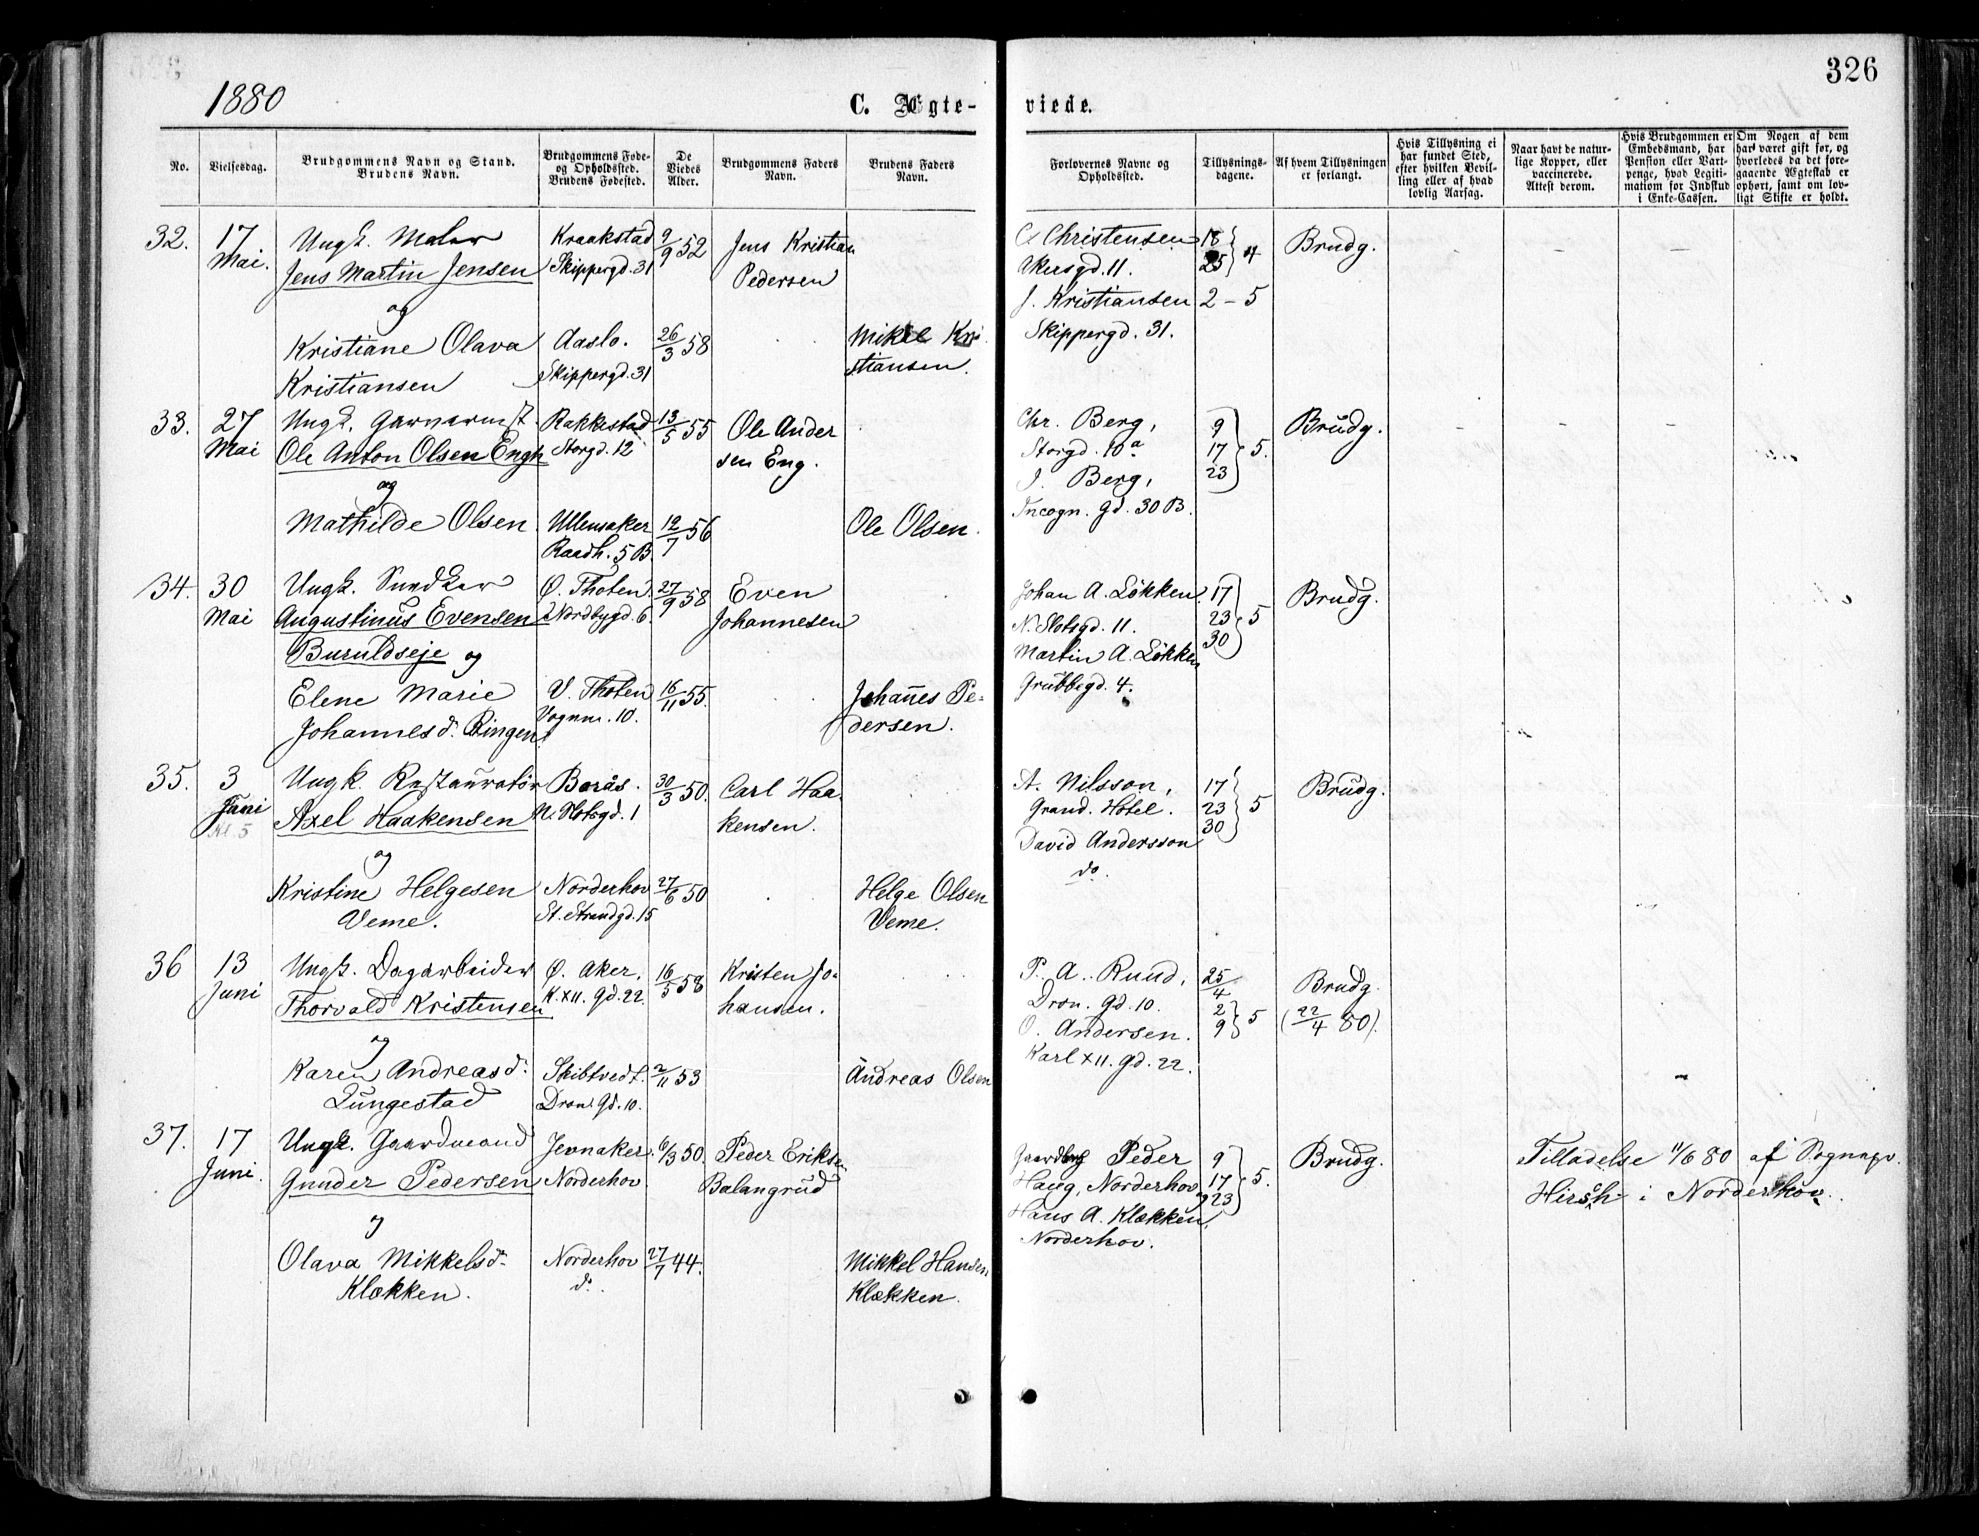 326
1880
C. Ægte-
viede.
No.
Vielsesdag.
Brudgommens Navn og Stand.
Brudens Navn.
Brudgommens Føde-
og Opholdssted.
Brudens Fødested.
De
Viedes
Alder.
Brudgommens Faders
Navn.
Brudens Faders
Navn.
Forlovernes Navne og
Opholdssted.
Tillysnings-
dagene.
Af hvem Tillysningen
er forlangt.
Hvis Tillysning ei
har fundet Sted,
efter hvilken Bevil-
ling eller af hvad
lovlig Aarsag.
Naar havt de natur-
lige Kopper, eller
vaccinerede.
Attest derom.
Hvis Brudgommen er
Embedsmand, har
Pension eller Vart-
penge, hvad Legiti-
mation for Indskud
i Enke-Cassen.
Om Nogen af dem
har været gift før, og
hvorledes da det fore-
gaaende Ægteskab er
ophørt, samt om lov-
ligt Skifte er holdt.
32.
17
Mai.
Ungk. Maler
Jens Martin Jensen
og
Kristiane Olava
Kristiansen
Kraakstad
Skippergd. 31
Aaslo.
Skippergd. 31
9/9 52
26/3 58
Jens Kristian
Pedersen
Mikel Kri
stiansen.
C Christensen
Akersgd. 11.
J. Kristiansen
Skippergd. 31.
18
25 } 4
2 – 5
Brudg.
33.
27
Mai
Ungk. Garvermst.
Ole Anton Olsen Engh
og
Mathilde Olsen
Rakkestad
Storgd. 12
Ullensaker
Raadh. 5 B.
13/5 55
12/7 56
Ole Ander
sen Eng.
Ole Olsen.
Chr. Berg,
Storgd. 10a
J. Berg,
Incogn. gd. 30 B.
9
17
23 } 5.
Brudg.
34.
30
Mai
Ungk. Snedker
Augustinus Evensen
Buruldseje og
Elene Marie
Johannesd. Ringen
Ø. Thoten.
Nordbygd. 6.
V. Thoten
Vognm. 10.
27/9 58
16/11 55.
Even
Johannesen
Johannes Pe-
dersen.
Johan A. Løkken.
N. Slotsgd. 11.
Martin A. Løkken
Grubbegd. 4.
17
23
30 } 5
Brudg.
35.
3
Juni
Kl. 5
Ungk. Restauratør
Axel Haakensen
og
Kristine Helgesen
Veme.
Borås.
N. Slotsgd. 1
Norderhov
St. Strandgd. 15
30/3 50.
27/6 50
Carl Haa
kensen.
Helge Olsen
Veme.
A. Nilsson,
Grand. Hotel.
David Andersson
do.
17
23
30 } 5
Brudg.
36
13
Juni
Ungk. Dagarbeider
Thorvald Kristensen
og
Karen Andreasd.
Lungestad
Ø. Aker.
K. XII. gd. 22.
Skibtvedt.
Dron. gd. 10.
16/5 58
2/11 53
Kristen Jo-
hansen.
Andreas Olsen
P. A. Ruud,
Dron. gd. 10.
O. Andersen.
Karl XII. gd. 22.
25/4
2
9 } 5
Brudg.
(22/4 80).
37.
17
Juni.
Ungk. Gaardmand
Gunder Pedersen
og
Olava Mikkelsd.
Klækken.
Jevnaker.
Norderhov
Norderhov
do.
6/3 50.
27/7 44.
Peder Eriksen
Balangrud
Mikkel Hansen
Klækken.
Gaardbrg Peder
Haug, Norderhov
Hans A. Klækken,
Norderhov.
9
17
23 } 5.
Brudg.
Tilladelse 11/6 80 af Sognepr.
Hirsh i Norderhov.